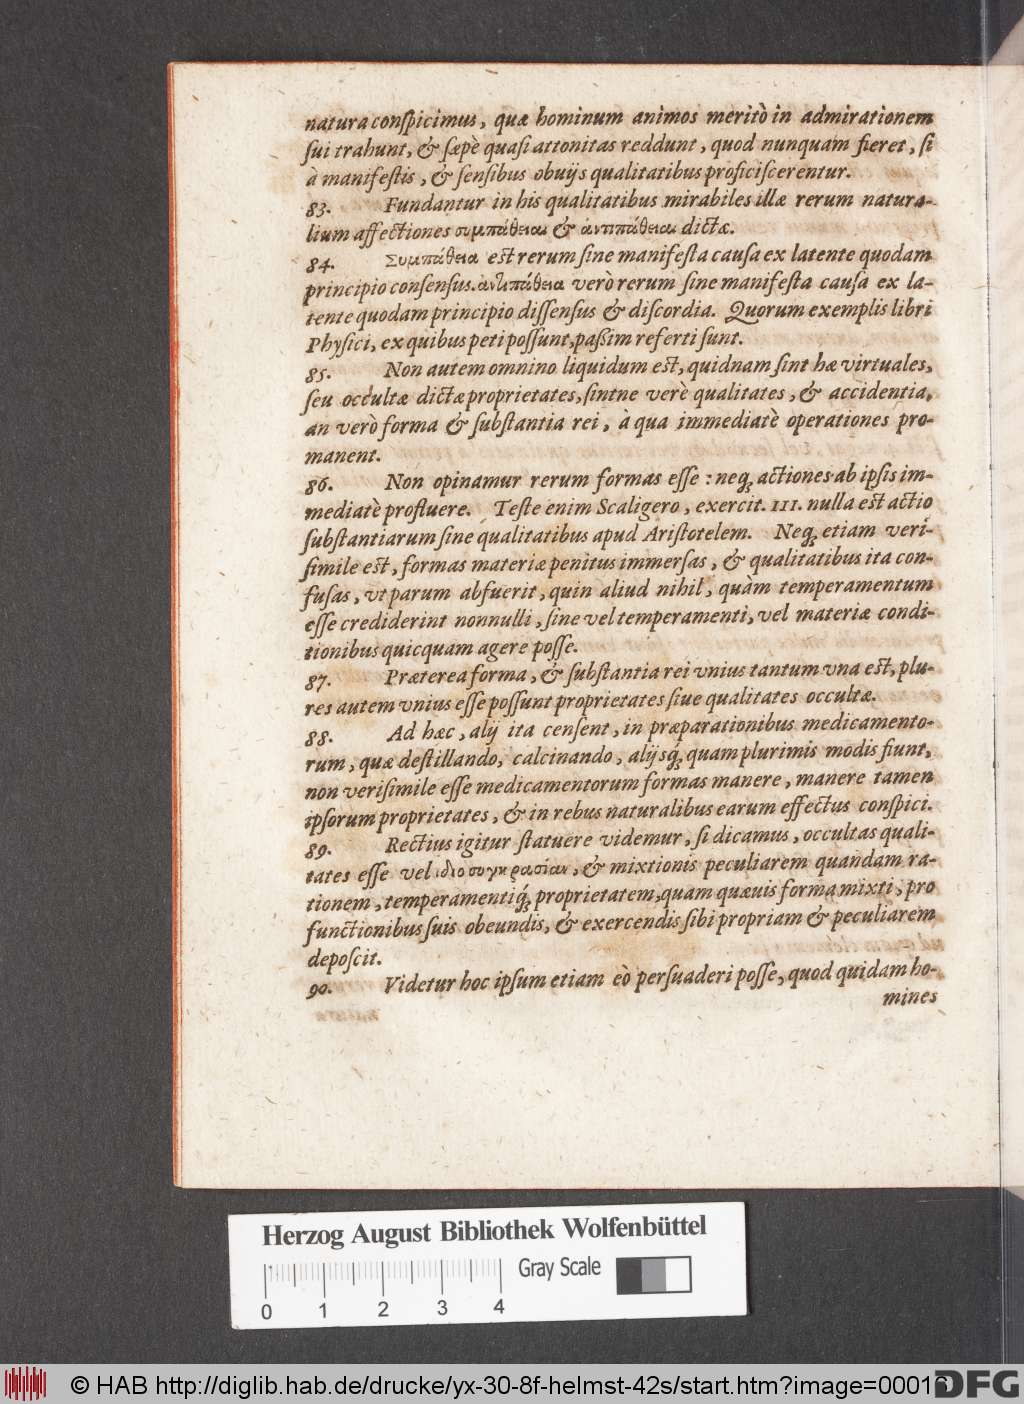 natura conſpicimus, quæ hominum animos meritò in admirationem
ſui trahunt, & ſæpè quaſi attonitas reddunt, quod nunquam fieret, ſi
à manifeſtis, & ſenſibus obuijs qualitatibus proficiſcerentur.
83. Fundantur in his qualitatibus mirabiles illæ rerum natura-
lium affectiones συμπάθειαι & ἀντιπάθειαι dictæ.
84. Συμπάθεια eſt rerum ſine manifeſta cauſa ex latente quodam
principio conſenſus. ἀντιπάθεια verò rerum ſine manifeſta cauſa ex la-
tente quodam principio diſſenſus & diſcordia. Quorum exemplis libri
Phyſici, ex quibus peti poſſunt, paßim referti ſunt.
85. Non autem omnino liquidum eſt, quidnam ſint hæ virtuales,
ſeu occultæ dictæ proprietates, ſintne verè qualitates, & accidentia,
an verò forma & ſubſtantia rei, à qua immediatè operationes pro-
manent.
86. Non opinamur rerum formas eſſe: neq; actiones ab ipſis im-
mediatè profluere. Teſte enim Scaligero, exercit. III. nulla eſt actio
ſubſtantiarum ſine qualitatibus apud Ariſtotelem. Neq; etiam veri-
ſimile eſt, formas materiæ penitus immerſas, & qualitatibus ita con-
fuſas, vt parum abfuerit, quin aliud nihil, quàm temperamentum
eſſe crediderint nonnulli, ſine vel temperamenti, vel materiæ condi-
tionibus quicquam agere poſſe.
87. Præterea forma, & ſubſtantia rei vnius tantum vna eſt, plu-
res autem vnius eſſe poſſunt proprietates ſiue qualitates occultæ.
88. Ad hæc, alij ita cenſent, in præparationibus medicamento-
rum, quæ deſtillando, calcinando, alijsq; quam plurimis modis fiunt,
non veriſimile eſſe medicamentorum formas manere, manere tamen
ipſorum proprietates, & in rebus naturalibus earum effectus conſpici.
89. Rectius igitur ſtatuere videmur, ſi dicamus, occultas quali-
tates eſſe vel ἰδιοσυγκρασίαι, & mixtionis peculiarem quandam ra-
tionem, temperamentiq; proprietatem, quam quæuis forma mixti, pro
functionibus ſuis obeundis, & exercendis ſibi propriam & peculiarem
depoſcit.
90. Videtur hoc ipſum etiam eò perſuaderi poſſe, quod quidam ho-
mines
Herzog August Bibliothek Wolfenbüttel
Gray Scale
0 1 2 3 4
© HAB http://diglib.hab.de/drucke/yx-30-8f-helmst-42s/start.htm?image=00016
DFG